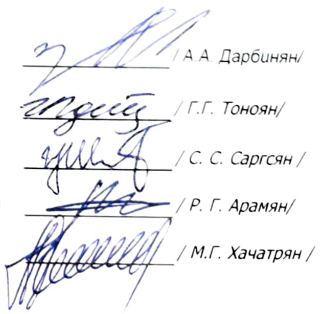 / А.А. Дарбинян/
/ Г.Г. Тоноян/
/ С. С. Саргсян /
/ Р. Г. Арамян/
/ М.Г. Хачатрян /